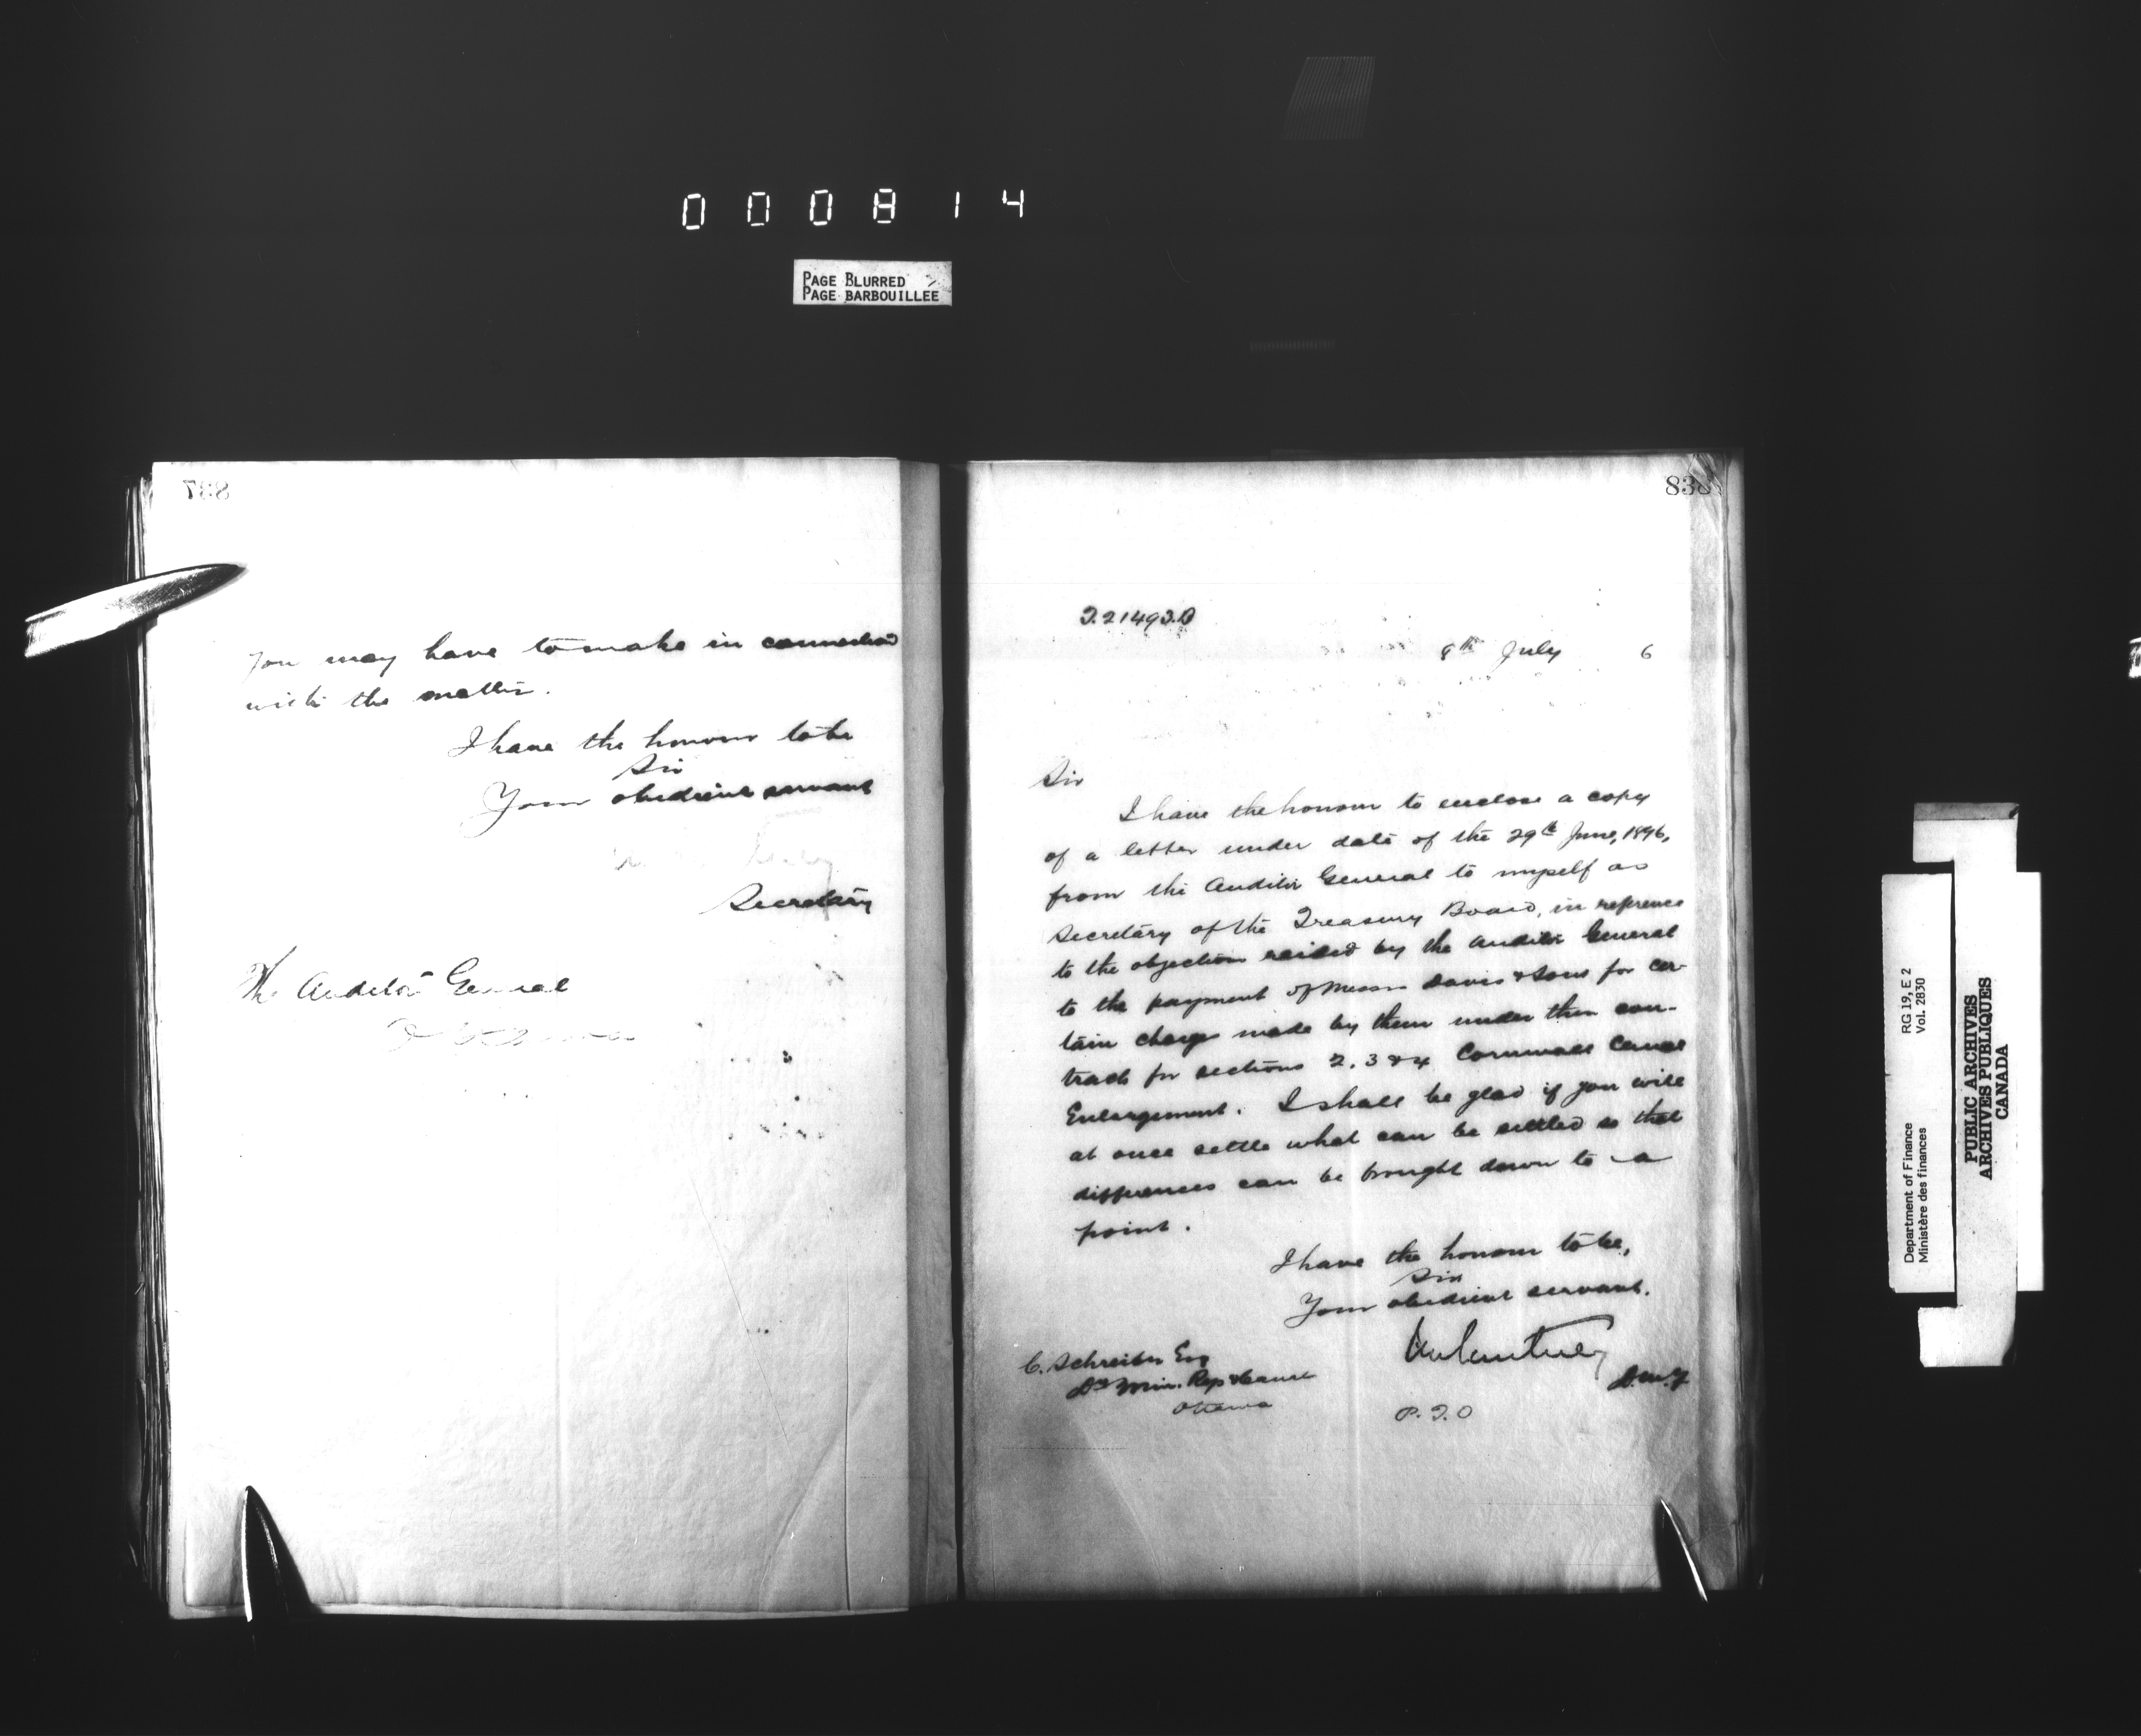 000814
PAGE BLURRED
PAGE BARBOUILLEE
837
you may have to make in connection
with the matter.
I have the honour to be
Sir
Your obedient servant
Secretary
The Auditor General
838
9th July 6
Sir
I have the honour to enclose a copy
of a letter under date of the 29th June, 1896,
from the Auditor General to myself as
Secretary of the Treasury Board, in reference
to the objection raised by the Auditor General
to the payment of Messrs Davis & Sons for cer-
tain charges made by them under their con-
tracts for sections 2, 3 & 4 Cornwall Canal
Enlargement. I shall be glad if you will
at once settle what can be settled so that
differences can be brought down to a
point.
I have the honour to be,
Sir
Your obedient servant.
D.M.F
C. Schreiber Esq
Ottawa
P.T.O
Department of Finance RG 19, E 2
Ministère des finances Vol. 2830
PUBLIC ARCHIVES
ARCHIVES PUBLIQUES
CANADA